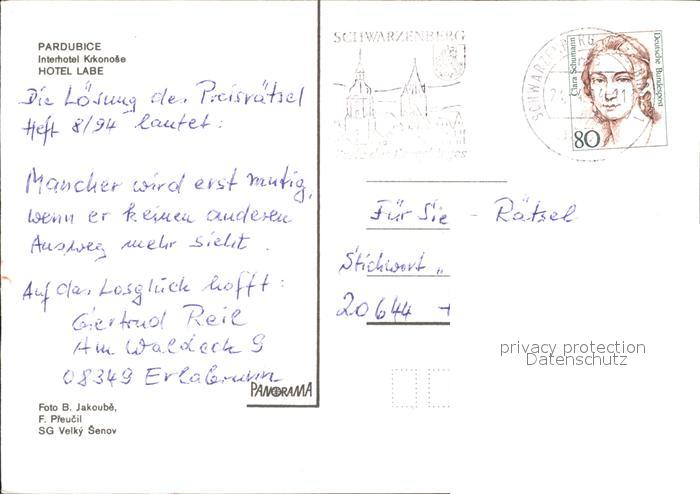 PARDUBICE
Interhotel Krkonoše
HOTEL LABE
Die Lösung des Preisrätsel
Heft 8/94 lautet:
Mancher wird erst mutig,
wenn er keinen anderen
Ausweg mehr sieht.
Auf das Losglück hofft:
Gertrud Reil
Am Waldeck 9
08349 Erlabrunn
PANORAMA
Foto B. Jakoubě,
F. Přeučil
SG Velký Šenov
SCHWARZENBERG
SCHWARZENBERG
Clara Schumann
Deutsche Bundespost
80
Für Sie - Rätsel
Stichwort "
20644
privacy protection
Datenschutz